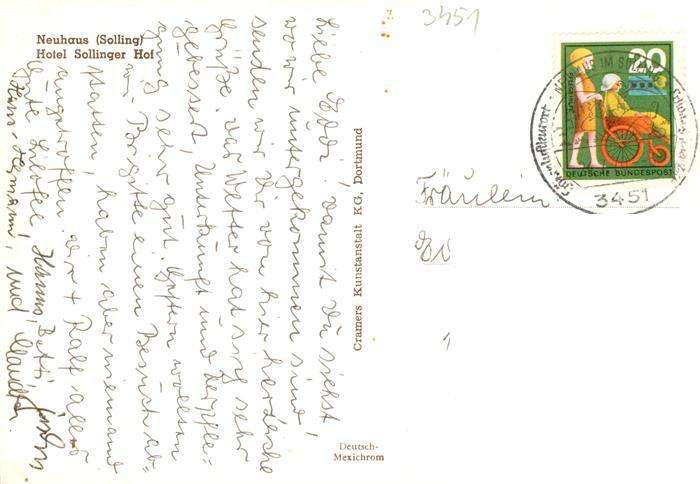 Neuhaus (Solling)
Hotel Sollinger Hof
Liebe Eddi, damit Du siehst
wo wir untergekommen sind,
senden wir Dir von hier herzliche
Grüße. Das Wetter hat sich sehr
gebessert, Unterkunft und Verpfle-
gung sehr gut. Gestern wollten
wir Brigitte einen Besuch ab-
statten haben aber niemand
angetroffen.
Hanno, Betti
Hans-Hermann, und Claudia.
Cramers Kunstanstalt KG, Dortmund
Deutsch-
Mexichrom
3451
20
DEUTSCHE BUNDESPOST
3451
Fräulein